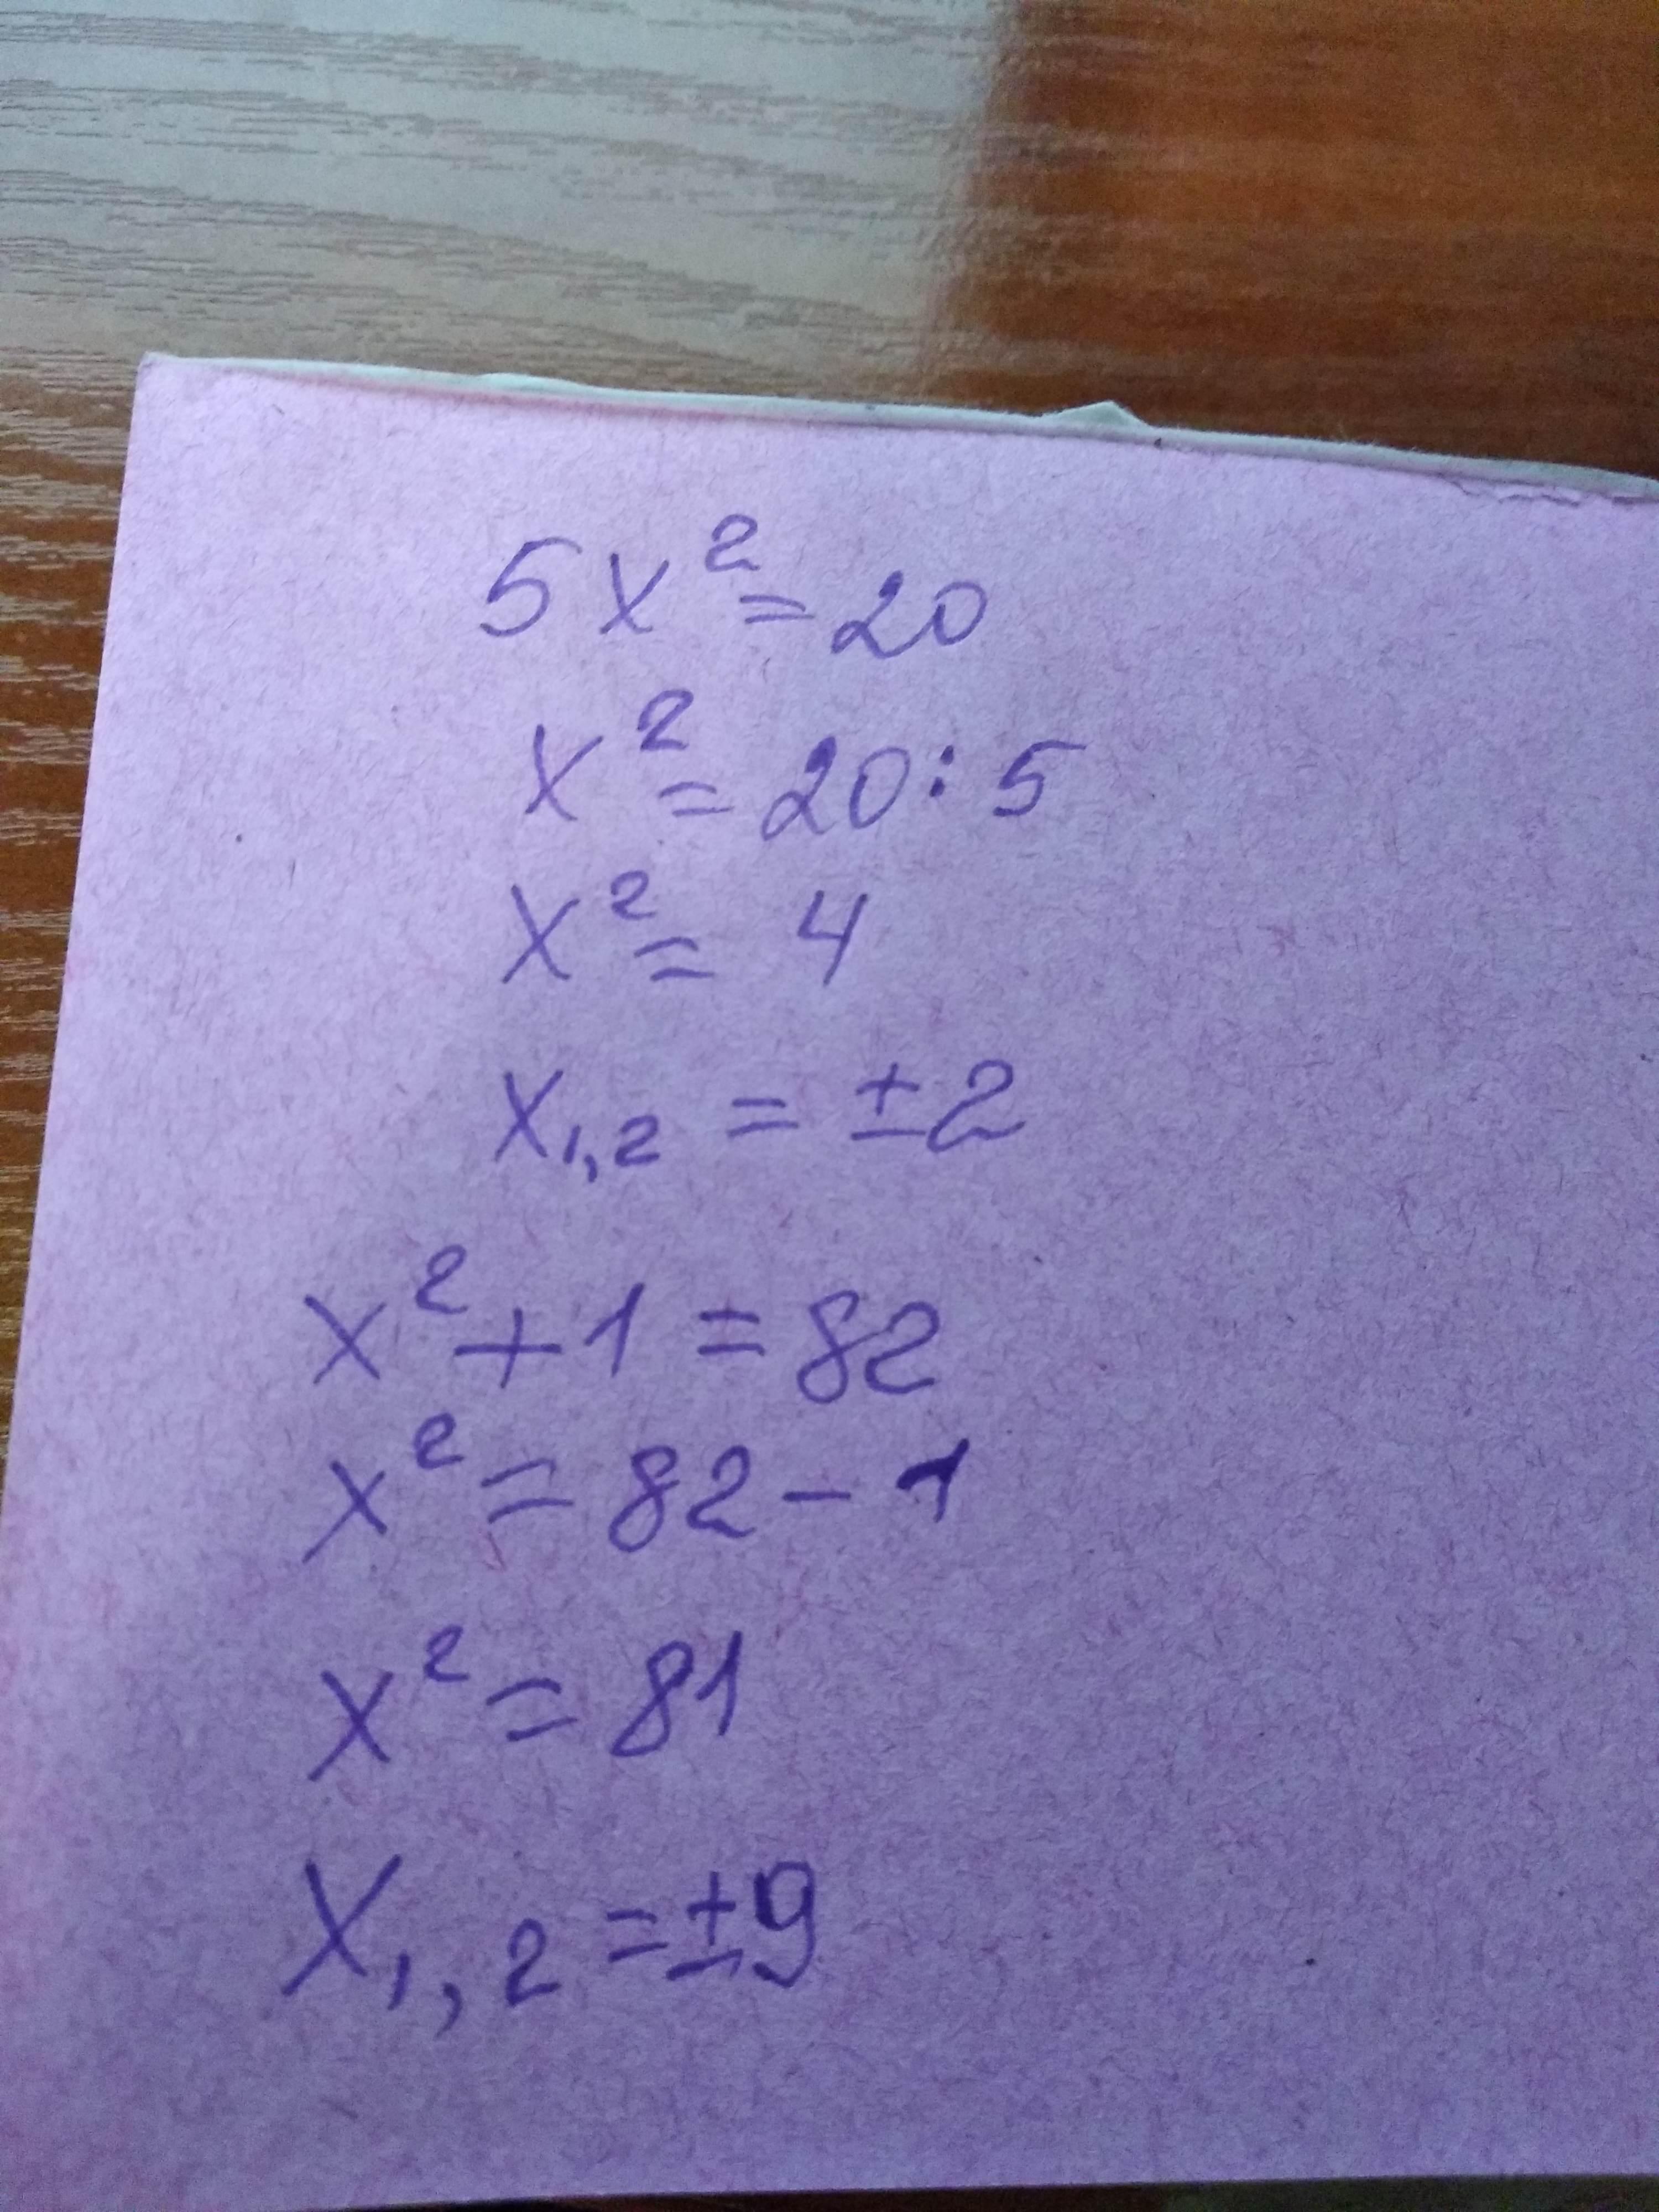 5x² = 20
x² = 20 : 5
x² = 4
x₁,₂ = ±2
x² + 1 = 82
x² = 82 − 1
x² = 81
x₁,₂ = ±9